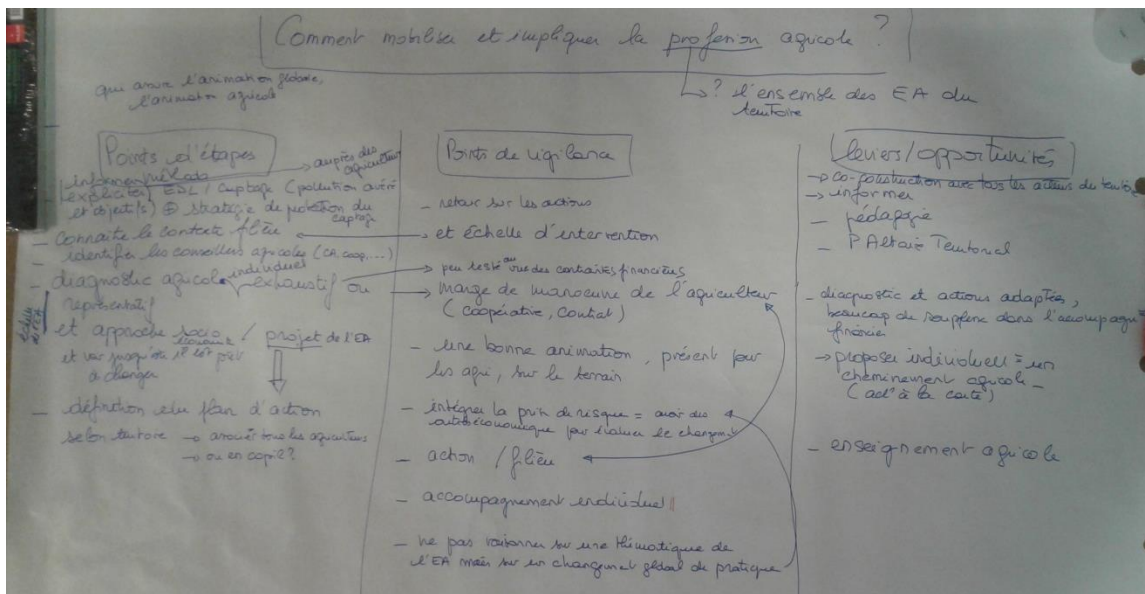 Comment mobiliser et impliquer la profession agricole ?
qui assure l'animation globale,
l'animation agricole
? l'ensemble des EA du
territoire
Points d'étapes
informer/
expliciter
auprès des
agriculteurs
/ captage (pollution avéré
et objectifs) ⊕ stratégie de protection du
captage
- Connaître le contexte filière
- identifier les conseillers agricoles (CA, coop, ...)
- diagnostic agricole individuel exhaustif ou
représentatif
et approche socio économique / projet de l'EA
et voir jusqu'où il est prêt
à changer
- définition du plan d'action
selon territoire → associer tous les agriculteurs
→ ou en copil ?
Points de vigilance
- retour sur les actions
→ et échelle d'intervention
→ peu testé au vue des contraintes financières
→ marge de manoeuvre de l'agriculteur
(coopérative, contrat)
- une bonne animation, présent pour
les agri, sur le terrain
- intégrer la prise de risque = avoir des
économique pour évaluer le changement
- action / filière
- accompagnement individuel
- ne pas raisonner sur une thématique de
l'EA mais sur un changement global de pratique
leviers/opportunités
→ co-construction avec tous les acteurs du territoire
→ informer
- pédagogie
- P Altaïr Territorial
- diagnostic et actions adaptés,
beaucoup de souplesse dans l'accompagne
financier
→ proposer individuell = un
cheminement agricole -
(act° à la carte)
- enseignement agricole